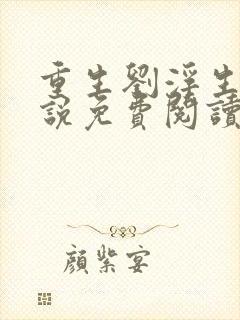 重生劉淫生
説免費閱讀
顏紫宴